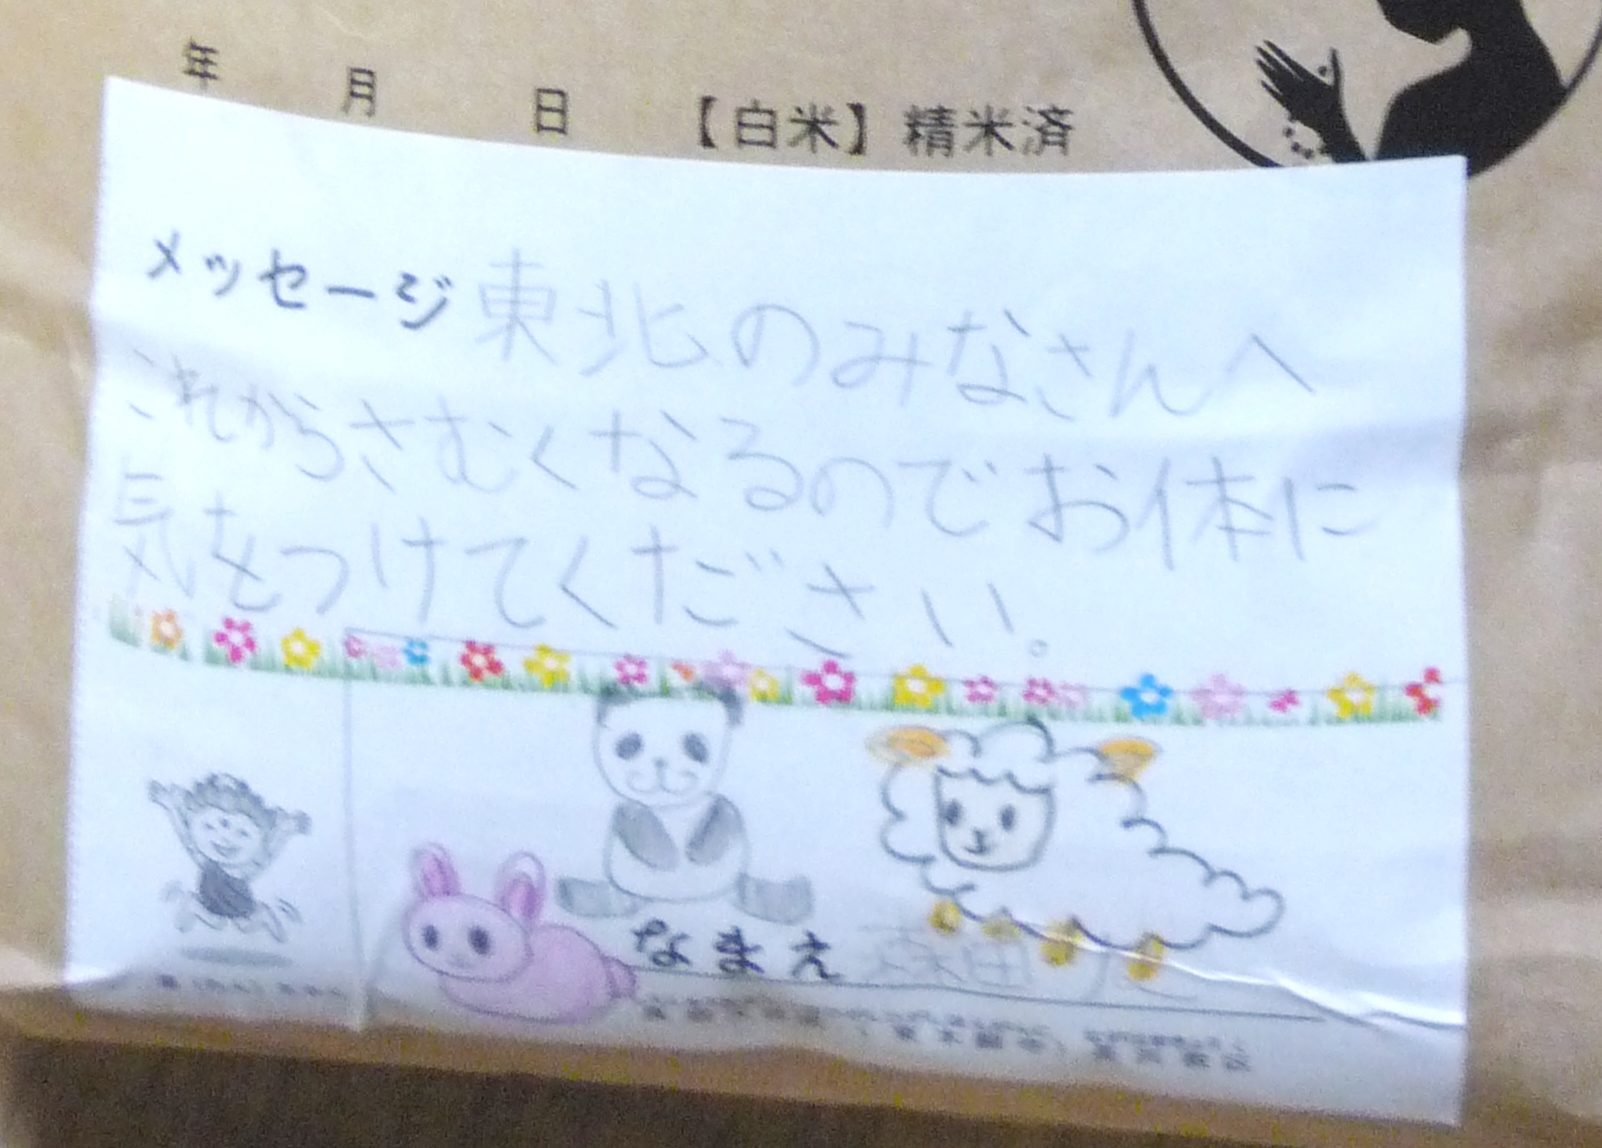 年 月 日 【白米】精米済
メッセージ 東北のみなさんへ
これからさむくなるのでお体に
気をつけてください。
なまえ